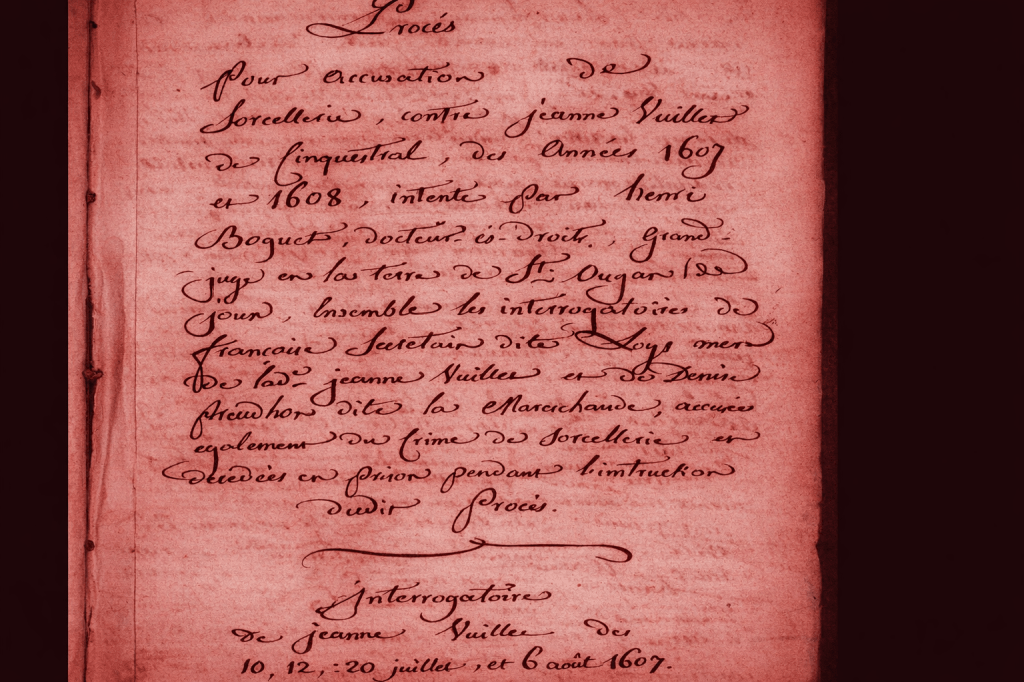 Procés
pour accusation de
Sorcellerie, contre jeanne Vuillet
de Cinquestral, des Années 1607
et 1608, intenté par henri
Boguet, docteur-és-droits, Grand-
juge en la terre de St: Ougan (de
joux, Ensemble les interrogatoires de
francoise Secretain dite Loys mere
de lad.e jeanne Vuillet et de Denise
preudhon dite la Mareschaude, accusée
également du Crime de sorcellerie et
décédées en prison pendant l'instruction
dudit Procés.
Interrogatoire
de jeanne Vuillet des
10, 12, :20 juillet, et 6 août 1607.